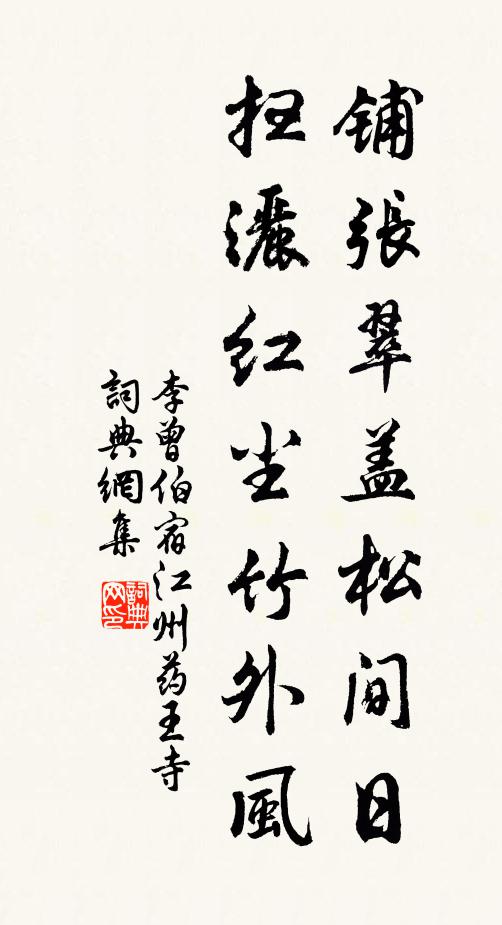 铺張翠盖松间日
扫灑红尘竹外風
李曾伯宿江州药王寺
詞典網集
詞典网印